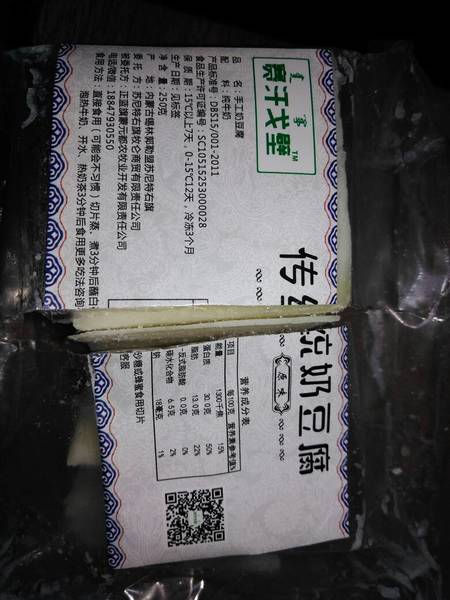 蒙汗戈壁™
传统奶豆腐
原味
品名：手工奶豆腐
配料：纯牛奶
产品标准号：DBS15/001-2011
食品生产许可证编号：SC10515253000028
保质期：15℃以上7天，0-15℃12天，冷冻3个月
生产日期：见标签
净含量：250克
产地：内蒙古锡林郭勒盟苏尼特右旗
委托方：苏尼特右旗牧仑商贸有限责任公司
被委托方：正蓝旗蒙元都农牧业开发有限责任公司
电话微信：18847930550
食用方法：直接食用（可能会不习惯）切片蒸、煮3分钟后蘸白
砂糖或蜂蜜食用切片
泡热牛奶、开水、热奶茶3分钟后食用更多吃法咨询
客服
营养成分表
项目 每100克 营养素参考值%
能量 1300千焦 15%
蛋白质 30.0克 50%
脂肪 13.0克 22%
反式脂肪酸 0.0克 0%
碳水化合物 6.5克 2%
钠 18毫克 1%